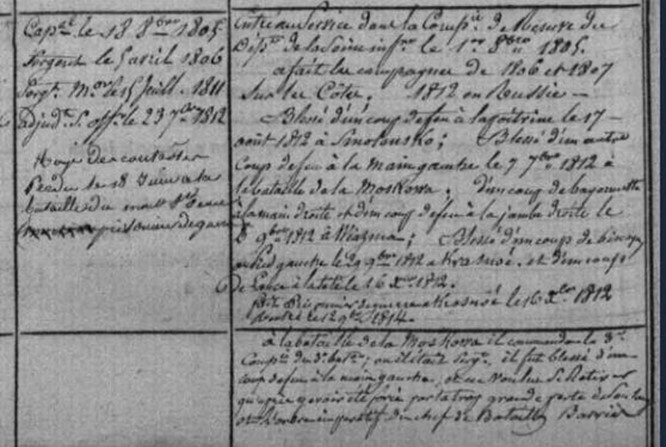 Cap.al le 18 8bre 1805
Sergent le 5 avril 1806
Serg.t M.or le 15 Juill. 1811
Adjud.t S. off.r le 23 7bre 1812
le 18 Juin a la
bataille du mont St Jean
prisonnier de guerre
Entré au Service dans la Comp.ie de Réserve du
Dép.t de la Seine inf.re le 1er 8bre 1805.
a fait les campagnes de 1806 et 1807
Sur les Côtes, 1812 en Russie
Blessé d'un coup de feu à la poitrine le 17
août 1812 à Smolensko; Blessé d'un autre
Coup de feu à la main gauche le 7 7bre 1812 à
la bataille de la Moskowa; d'un coup de bayonnette
à la main droite et d'un coup de feu à la jambe droite le
9bre 1812 à Wiazma; Blessé d'un coup de
au pied gauche le 9bre 1812 a Krasnoé. et d'un coup
de Lance à la tête le 16 Xbre 1812.
Prisonnier de guerre a Krasnoé le 16 Xbre 1812
Rentré le 12 9bre 1814.
à la bataille de la Moskowa il commandait la 3e
Comp.ie du 3e bat.on; où il était Serg.t, il fut blessé d'un
coup de feu à la main gauche, et ne voulut se Retirer
qu'après y avoir été forcé par la trop grande perte de Sang
et l'ordre impératif du chef de Bataillon